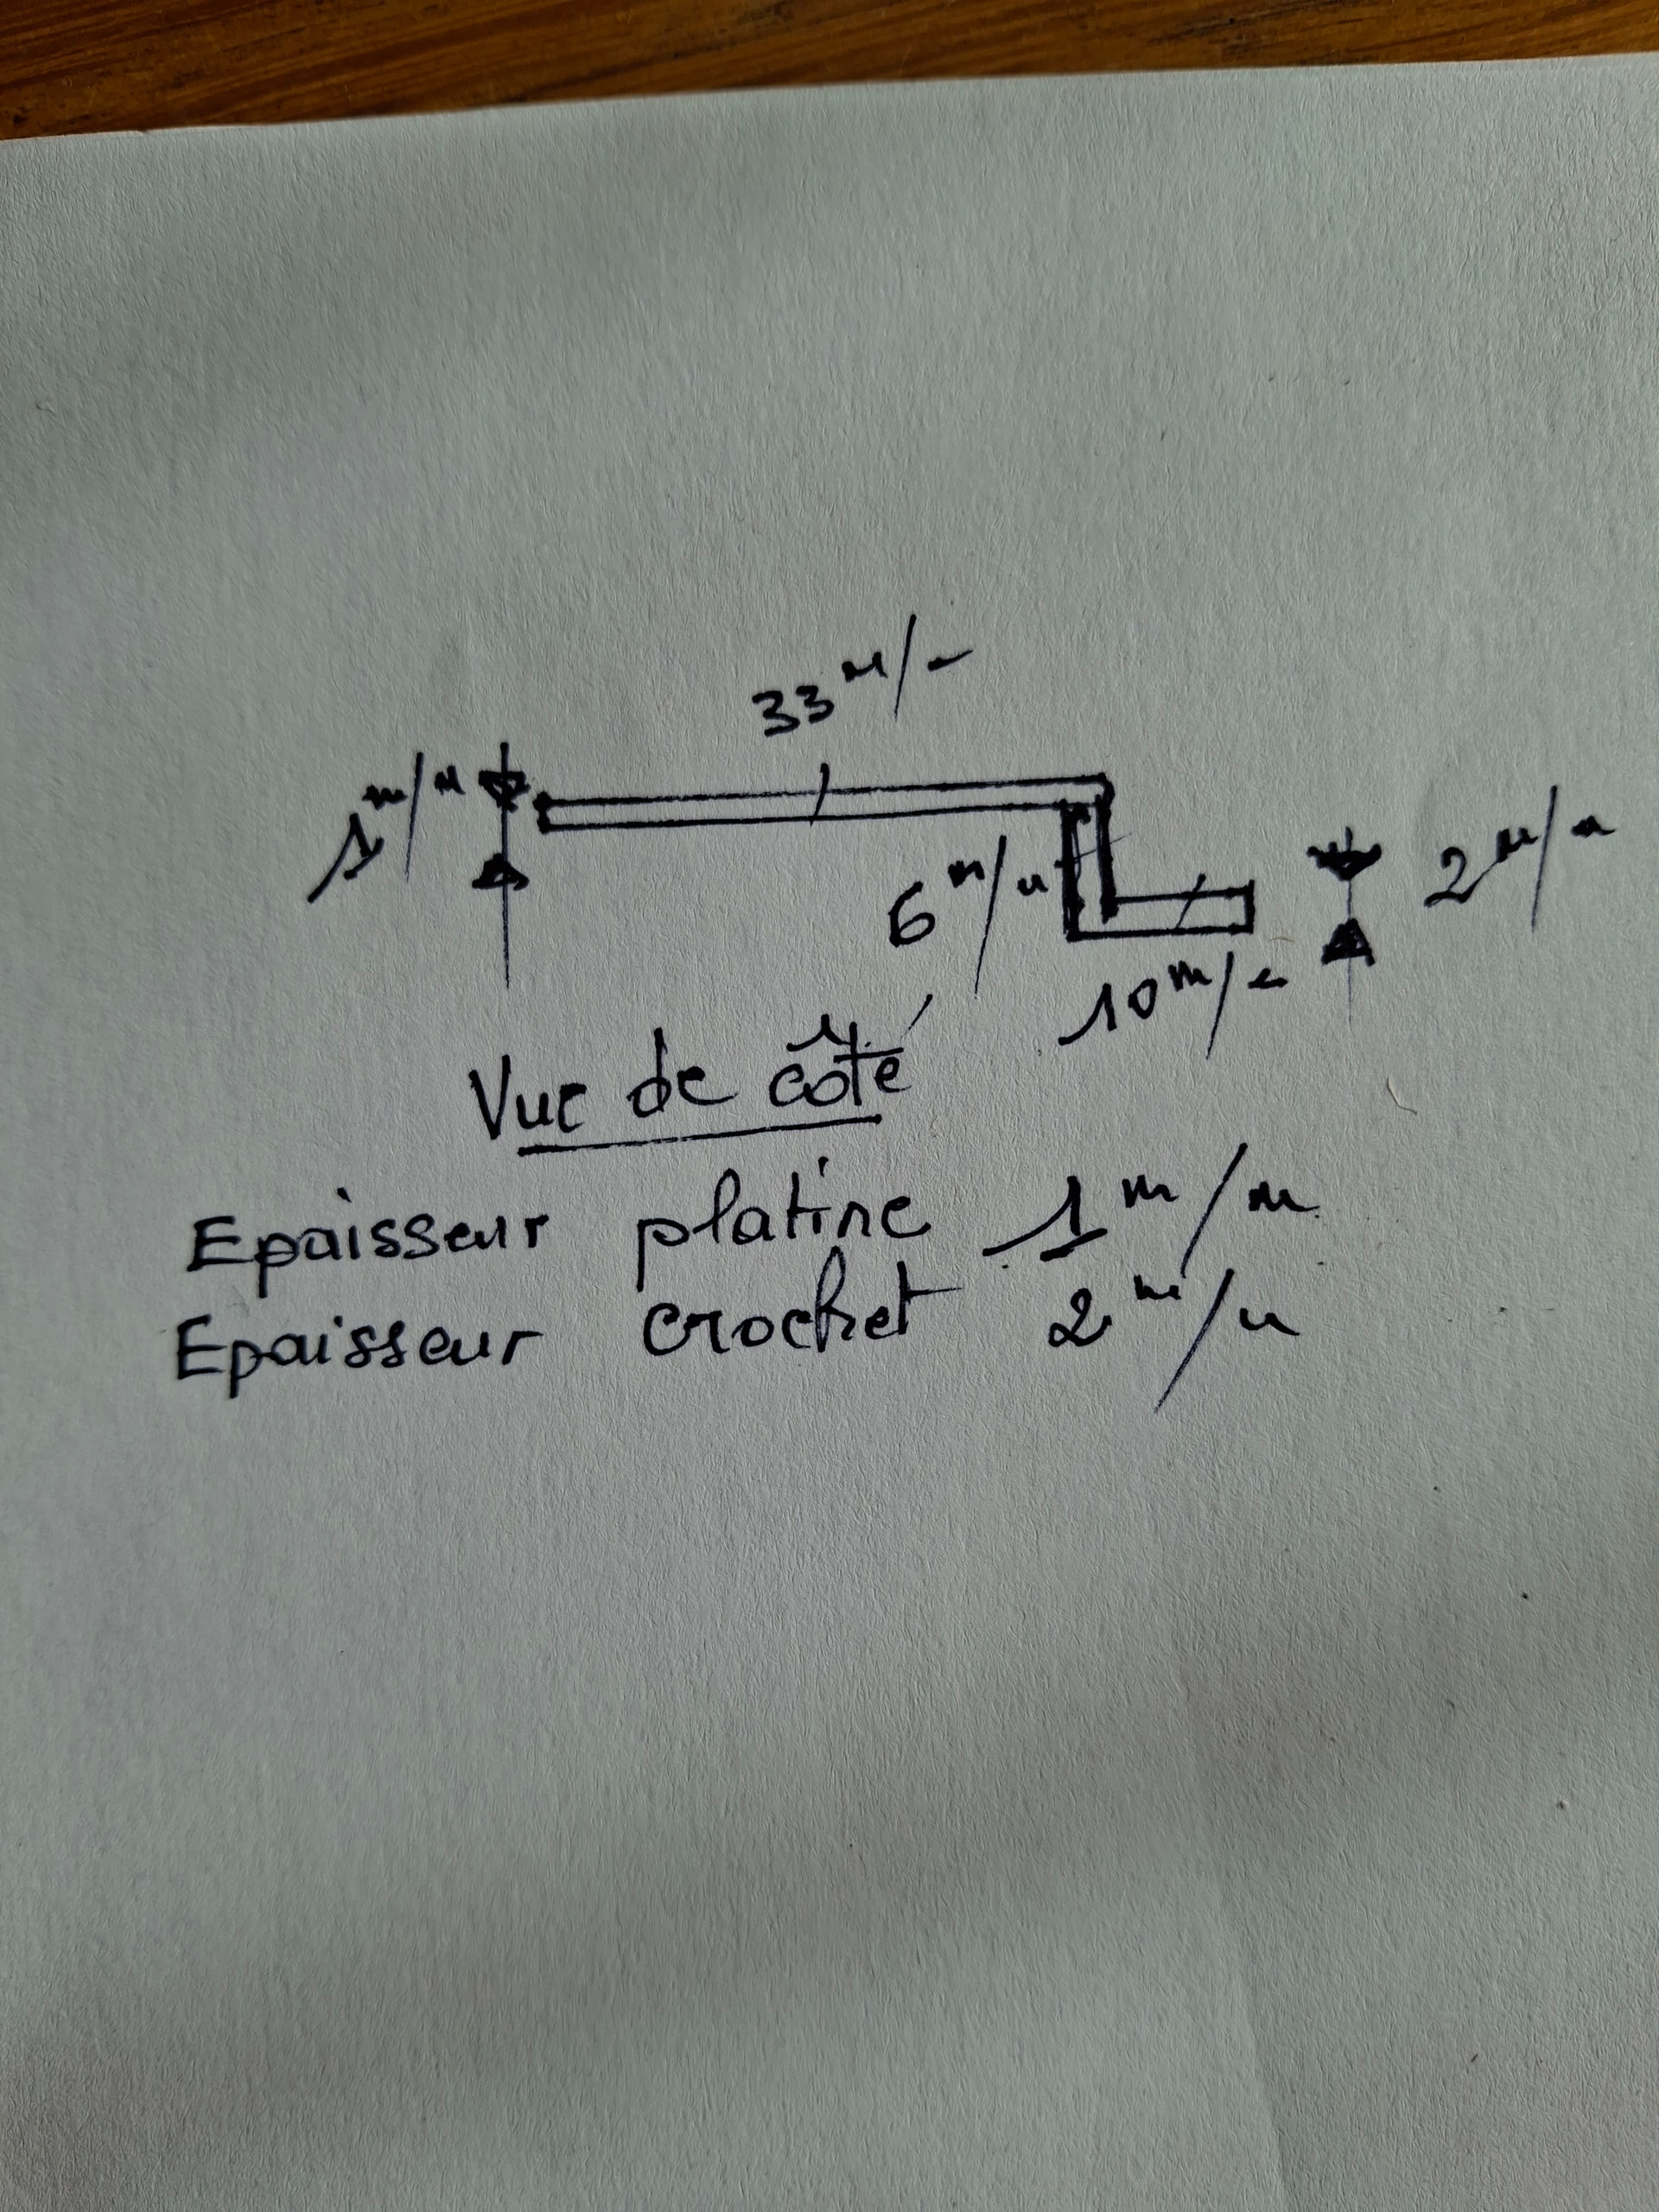 33 m/m
1 m/m
6 m/m
2 m/m
10 m/m
Vue de côté
Epaisseur platine 1 m/m
Epaisseur crochet 2 m/m